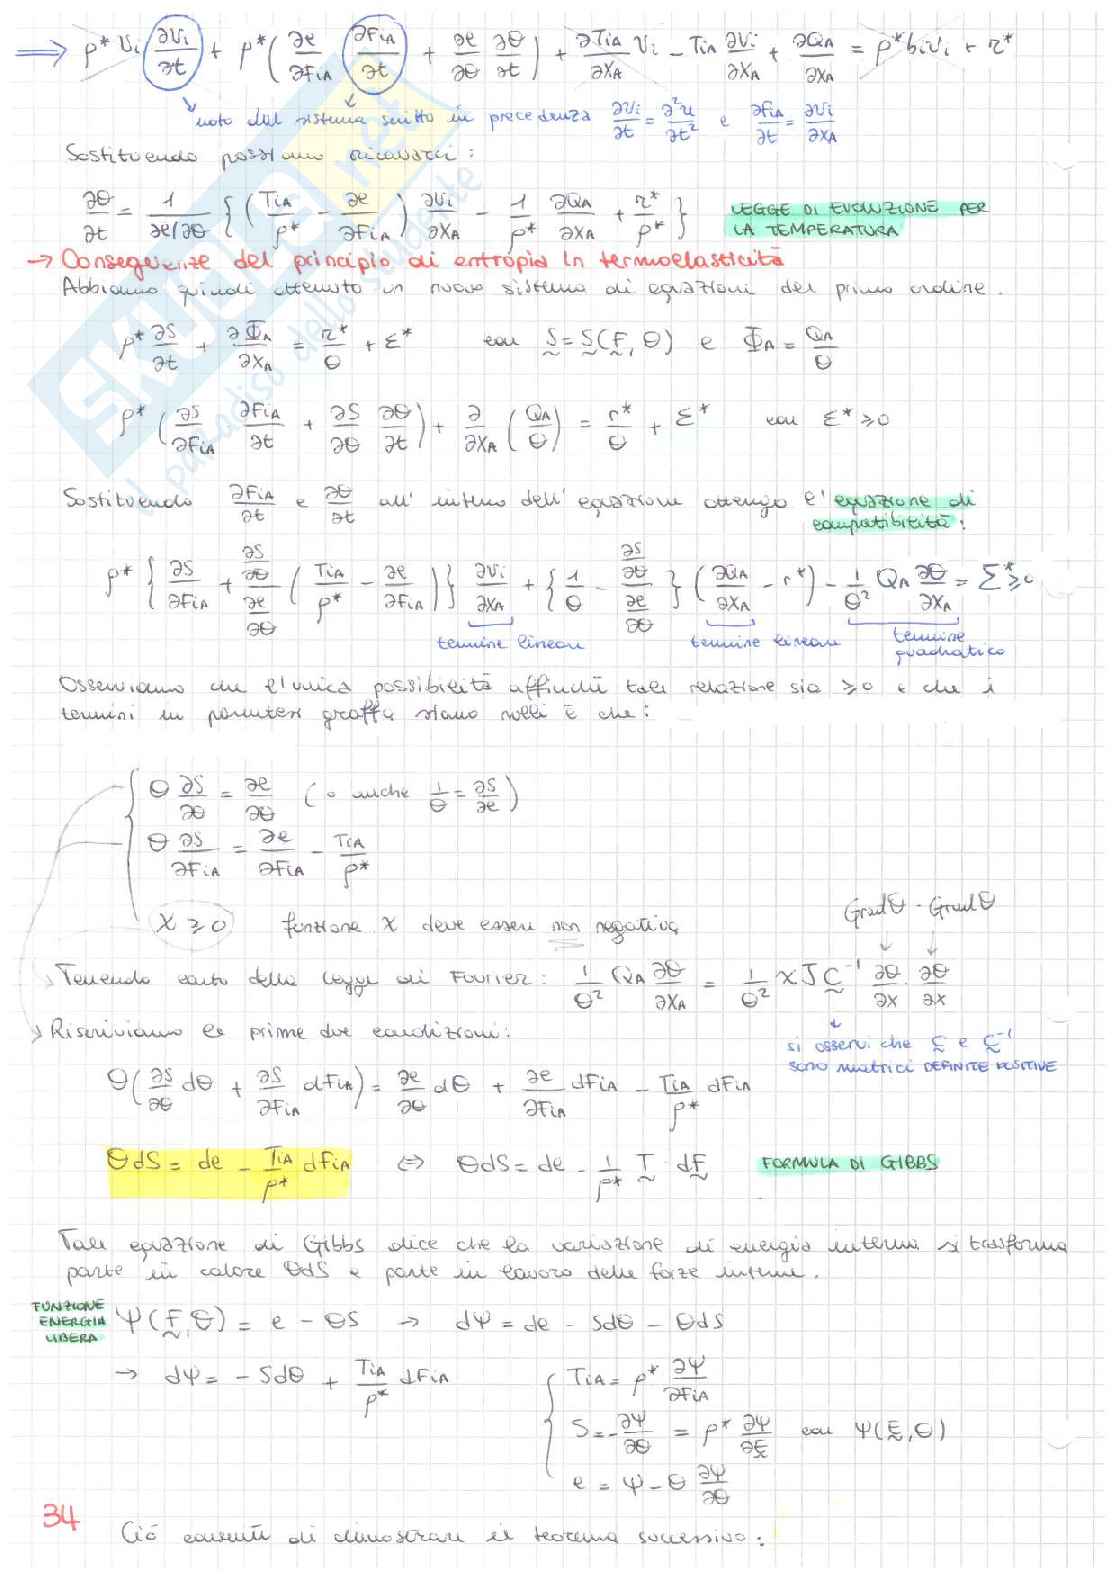 ⇒ ρ* vi ∂vi/∂t + ρ*(∂e/∂FiA ∂FiA/∂t + ∂e/∂θ ∂θ/∂t) + ∂TiA/∂XA vi - TiA ∂vi/∂XA + ∂QA/∂XA = ρ* bi vi + r*
noto dal sistema scritto in precedenza ∂vi/∂t = ∂²u/∂t² e ∂FiA/∂t = ∂vi/∂XA
Sostituendo possiamo ricavarci:
∂θ/∂t = 1/(∂e/∂θ) { (TiA/ρ* - ∂e/∂FiA) ∂vi/∂XA - 1/ρ* ∂QA/∂XA + r*/ρ* } LEGGE DI EVOLUZIONE PER
LA TEMPERATURA
→ Conseguenze del principio di entropia in termoelasticità
Abbiamo quindi ottenuto un nuovo sistema di equazioni del primo ordine.
ρ* ∂S/∂t + ∂ΦA/∂XA = r*/θ + Σ* con S = S(F, θ) e ΦA = QA/θ
ρ* (∂S/∂FiA ∂FiA/∂t + ∂S/∂θ ∂θ/∂t) + ∂/∂XA (QA/θ) = r*/θ + Σ* con Σ* ≥ 0
Sostituendo ∂FiA/∂t e ∂θ/∂t all'interno dell'equazione ottengo l'equazione di
compatibilità:
ρ* { ∂S/∂FiA + (∂S/∂θ)/(∂e/∂θ) (TiA/ρ* - ∂e/∂FiA) } ∂vi/∂XA + { 1/θ - (∂S/∂θ)/(∂e/∂θ) } (∂QA/∂XA - r*) - 1/θ² QA ∂θ/∂XA = Σ* ≥ 0
termine lineare termine lineare termine
quadratico
Osserviamo che l'unica possibilità affinché tale relazione sia ≥ 0 è che i
termini in parentesi graffa siano nulli è che:
θ ∂S/∂θ = ∂e/∂θ (o anche 1/θ = ∂S/∂e)
θ ∂S/∂FiA = ∂e/∂FiA - TiA/ρ*
χ ≥ 0 funzione χ deve essere non negativa
Gradθ · Gradθ
Tenendo conto della legge di Fourier: 1/θ² QA ∂θ/∂XA = 1/θ² χ J C⁻¹ ∂θ/∂X · ∂θ/∂X
Riscriviamo le prime due condizioni:
si osservi che C e C⁻¹
sono matrici DEFINITE POSITIVE
θ(∂S/∂θ dθ + ∂S/∂FiA dFiA) = ∂e/∂θ dθ + ∂e/∂FiA dFiA - TiA/ρ* dFiA
θdS = de - TiA/ρ* dFiA ⇔ θdS = de - 1/ρ* T · dF FORMULA DI GIBBS
Tale equazione di Gibbs dice che la variazione di energia interna si trasforma
parte in calore θdS e parte in lavoro delle forze interne.
FUNZIONE
ENERGIA
LIBERA
Ψ(F, θ) = e - θS → dΨ = de - Sdθ - θdS
→ dΨ = - Sdθ + TiA/ρ* dFiA
TiA = ρ* ∂Ψ/∂FiA
S = - ∂Ψ/∂θ = ρ* ∂Ψ/∂F con Ψ(F, θ)
e = Ψ - θ ∂Ψ/∂θ
34
Ciò consente di dimostrare il teorema successivo: